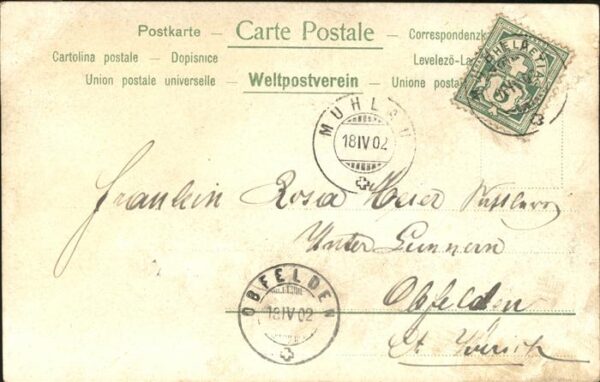 Postkarte — Carte Postale — Correspondenzka
Cartolina postale — Dopisnice
Levelező-La
Union postale universelle — Weltpostverein — Unione posta
HELVETIA
5
MÜHLAU
18 IV 02
Fraulein Rosa Meier
Unter Lunnern
Obfelden
Ct. Zürich
OBFELDEN
18 IV 02